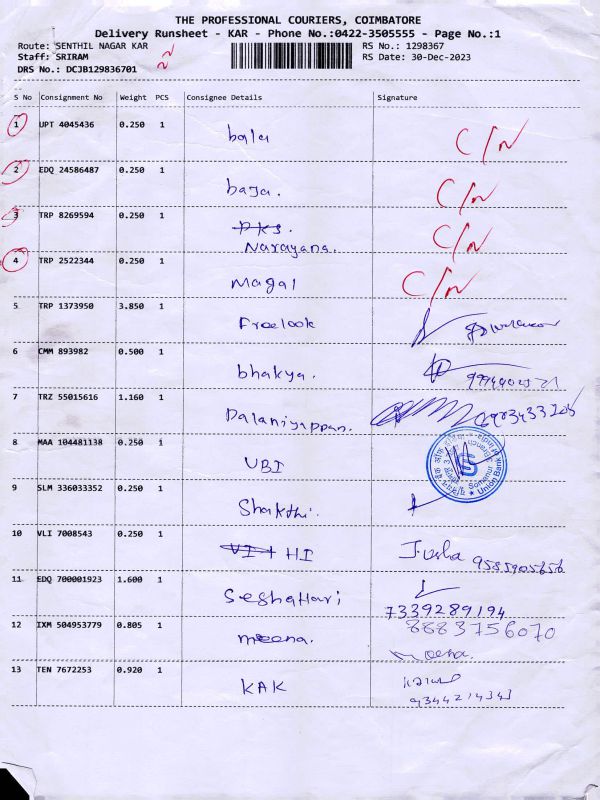 THE PROFESSIONAL COURIERS, COIMBATORE
Delivery Runsheet - KAR - Phone No.:0422-3505555 - Page No.:1
Route: SENTHIL NAGAR KAR RS No.: 1298367
Staff: SRIRAM RS Date: 30-Dec-2023
DRS No.: DCJB129836701
S No Consignment No Weight PCS Consignee Details Signature
1 UPT 4045436 0.250 1 balu C/N
2 EDQ 24586487 0.250 1 baja. C/N
3 TRP 8269594 0.250 1 PKS. C/N
Narayana.
4 TRP 2522344 0.250 1 Magal C/N
5 TRP 1373950 3.850 1 Freelook
6 CMM 893982 0.500 1 bhakya.
7 TRZ 55015616 1.160 1 Palaniyappan.
8 MAA 104481138 0.250 1 UBI Union Bank Somanur
9 SLM 336033352 0.250 1 Shakthi.
10 VLI 7008543 0.250 1 HI J. Usha 9585905656
11 EDQ 700001923 1.600 1 Seshahari 7339289194
12 IXM 504953779 0.805 1 meena. 8883756070
Meena.
13 TEN 7672253 0.920 1 KAK
9344214343